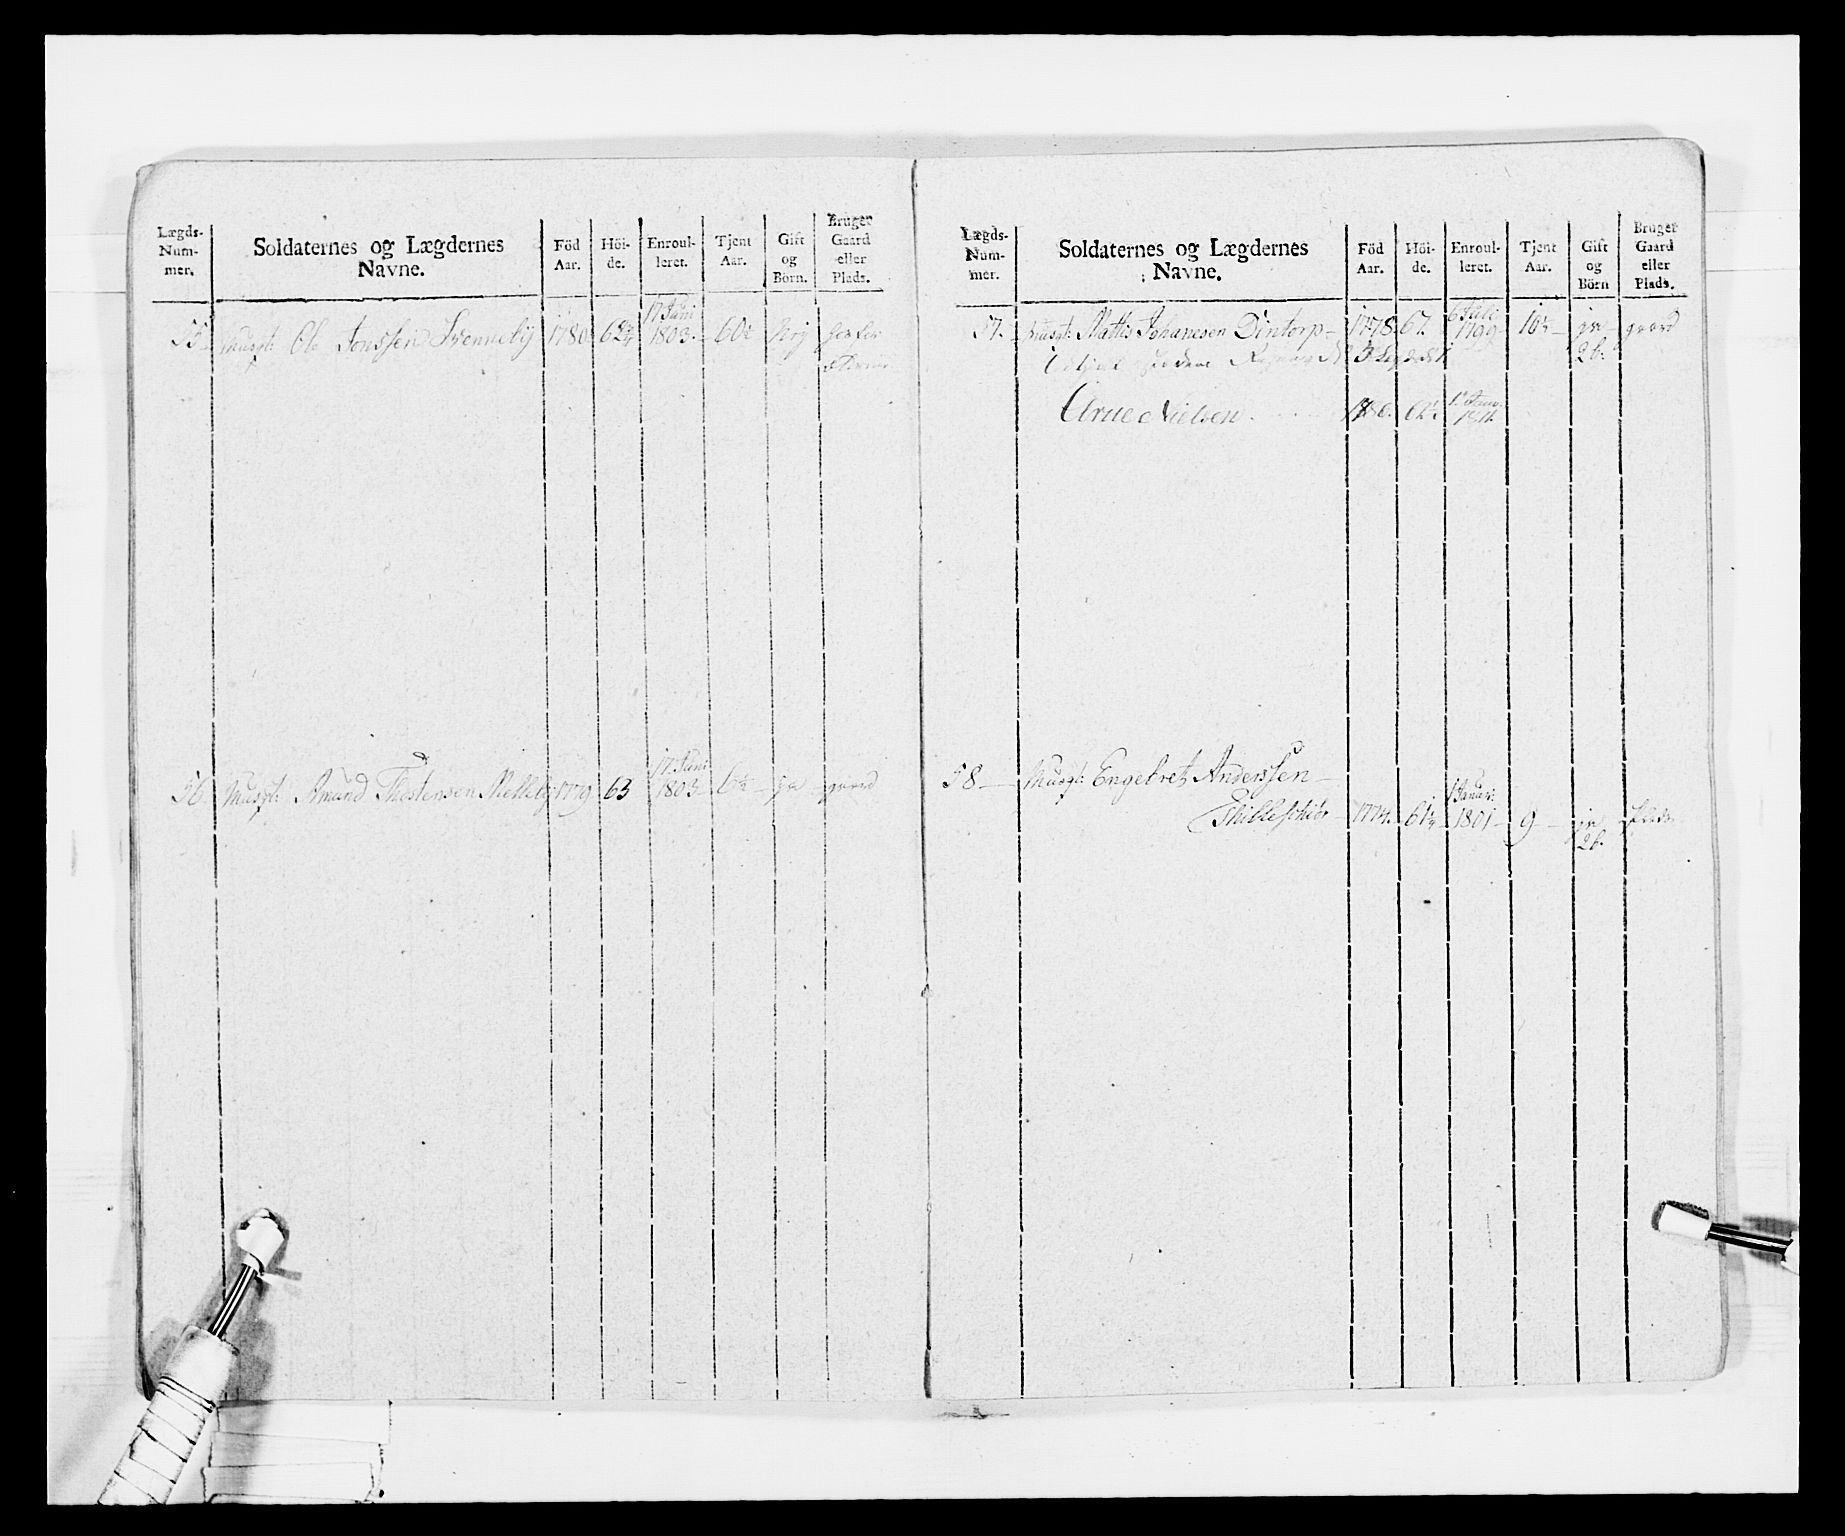 Lægds-
Num-
mer.
Soldaternes og Lægdernes
Navne.
Föd
Aar.
Höi-
de.
Enroul-
leret.
Tjent
Aar.
Gift
og
Börn.
Bruger
Gaard
eller
Plads.
17 Juni
55. Musqt: Ole Jonssen Svenneby 1780 62¾ 1803. 6½ Nej
17 Juni
56 Musqt: Amund Thostensen Melleby 1779 63 1803 6½ ja gaard
Lægds-
Num-
mer.
Soldaternes og Lægdernes
Navne.
Föd
Aar.
Höi-
de.
Enroul-
leret.
Tjent
Aar.
Gift
og
Börn
Bruger
Gaard
eller
Plads.
6 Juli
57. Musqt: Mattis Johanesen Dintorp 1778. 67. 1799 10½ ja gaard
2 b.
Arne Nielsen.
58 Musqt: Engebret Anderssen
1 Januar:
1774. 61¼ 1801 9 ja Plads
2 b.